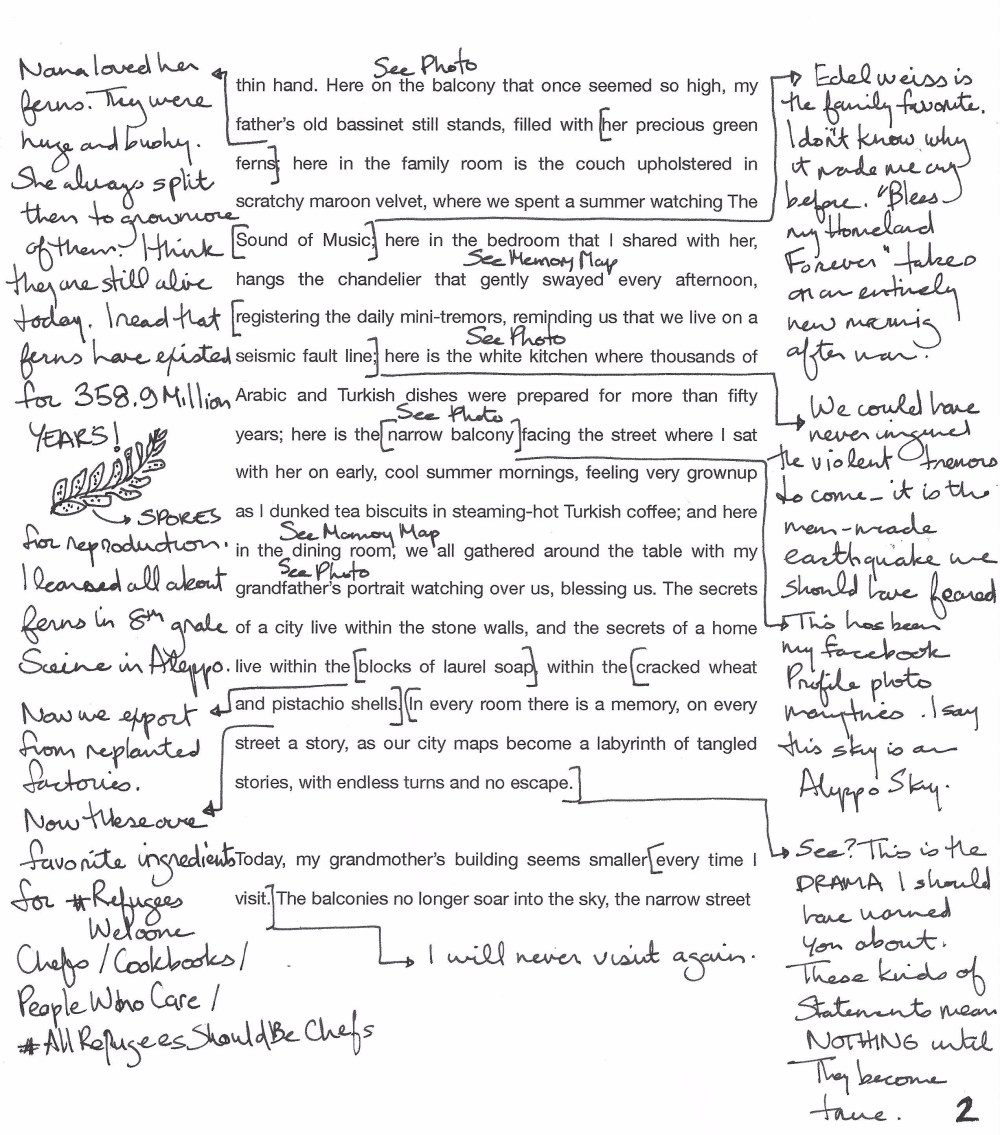 Nana loved her
ferns. They were
huge and bushy.
She always split
them to grow more
of them. I think
they are still alive
today. I read that
ferns have existed
for 358.9 Million
YEARS!
SPORES
for reproduction.
I learned all about
ferns in 8th grade
Science in Aleppo.
Now we export
from replanted
factories.
Now these are
favorite ingredients
for #Refugees
Welcome
Chefs / Cookbooks /
People Who Care /
#AllRefugeesShouldBeChefs
See Photo
thin hand. Here on the balcony that once seemed so high, my
father's old bassinet still stands, filled with [her precious green
ferns;] here in the family room is the couch upholstered in
scratchy maroon velvet, where we spent a summer watching The
[Sound of Music;] here in the bedroom that I shared with her,
See Memory Map
hangs the chandelier that gently swayed every afternoon,
[registering the daily mini-tremors, reminding us that we live on a
See Photo
seismic fault line;] here is the white kitchen where thousands of
Arabic and Turkish dishes were prepared for more than fifty
See Photo
years; here is the [narrow balcony] facing the street where I sat
with her on early, cool summer mornings, feeling very grownup
as I dunked tea biscuits in steaming-hot Turkish coffee; and here
See Memory Map
in the dining room, we all gathered around the table with my
See Photo
grandfather's portrait watching over us, blessing us. The secrets
of a city live within the stone walls, and the secrets of a home
live within the [blocks of laurel soap], within the [cracked wheat
and pistachio shells.] [In every room there is a memory, on every
street a story, as our city maps become a labyrinth of tangled
stories, with endless turns and no escape.]
Today, my grandmother's building seems smaller [every time I
visit.] The balconies no longer soar into the sky, the narrow street
I will never visit again.
Edelweiss is
the family favorite.
I don't know why
it made me cry
before. "Bless
my Homeland
Forever" takes
on an entirely
new meaning
after war.
We could have
never imagined
the violent tremors
to come - it is the
men-made
earthquake we
should have feared
This has been
my Facebook
Profile photo
many times. I say
this sky is an
Aleppo Sky.
See? This is the
DRAMA I should
have warned
you about.
These kinds of
Statements mean
NOTHING until
They become
true.
2